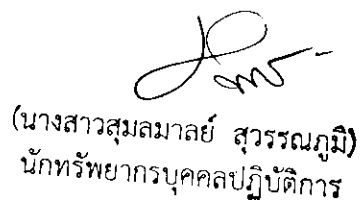 (นางสาวสุมลมาลย์ สุวรรณภูมิ)
นักทรัพยากรบุคคลปฏิบัติการ